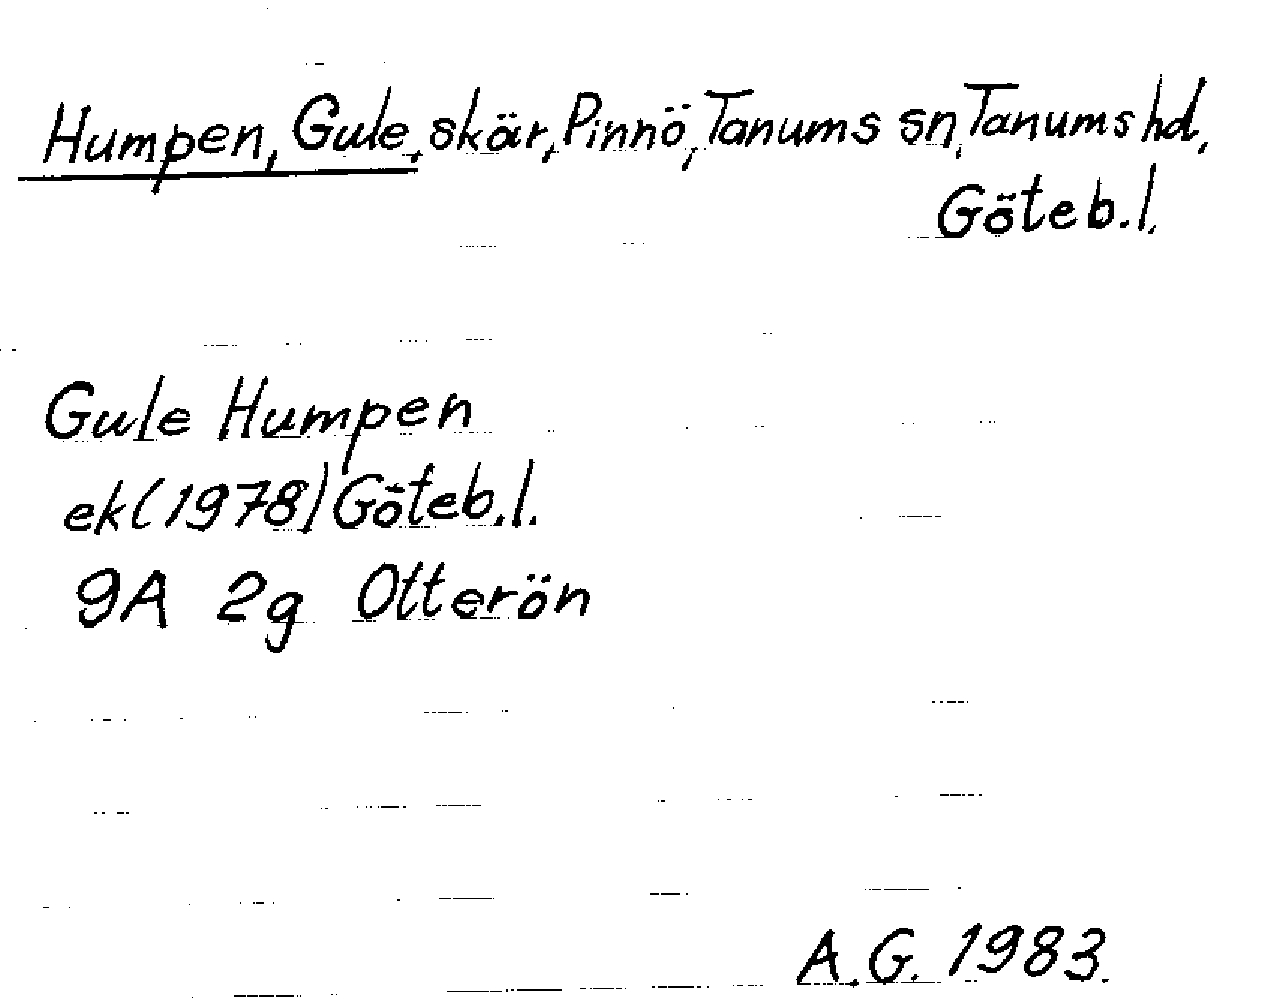 Humpen, Gule, skär, Pinnö, Tanums sn, Tanums hd,
Göteb.l.
Gule Humpen
ek (1978) Göteb.l.
9A 2g Otterön
A.G. 1983.